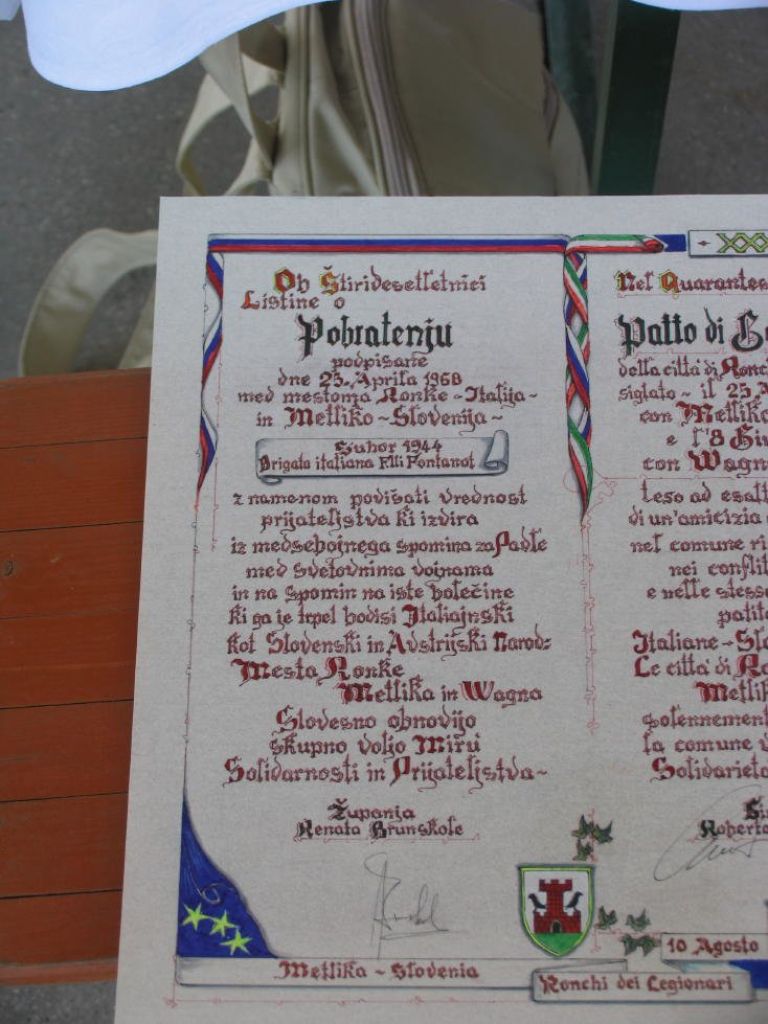 Ob Štiridesetletnici
Listine o
Pobratenju
podpisane
dne 25. Aprila 1968
med mestoma Ronke - Italija -
in Metliko - Slovenija -
Suhor 1944
Brigata italiana F.lli Fontanot
z namenom povišati vrednost
prijateljstva ki izvira
iz medsebojnega spomina za Padle
med svetovnima vojnama
in na spomin na iste bolečine
ki ga je trpel bodisi Italiajnski
kot Slovenski in Avstrijski Narod:
Mesta Ronke
Metlika in Wagna
Slovesno obnovijo
skupno voljo Miru
Solidarnosti in Prijateljstva -
Županja
Renata Brunskole
Metlika - Slovenia
XXX
Nel Quarantes
Patto di
della città di Ronc
siglato - il 25 A
con Metlika
e l'8 Giu
con Wagn
teso ad esalt
di un'amicizia
nel comune ri
nei conflit
e nelle stess
patit
Italiane - Slo
Le città di Ro
Metlik
solennemen
la comune v
Solidarietà
Si
Roberto
10 Agosto
Ronchi dei Legionari